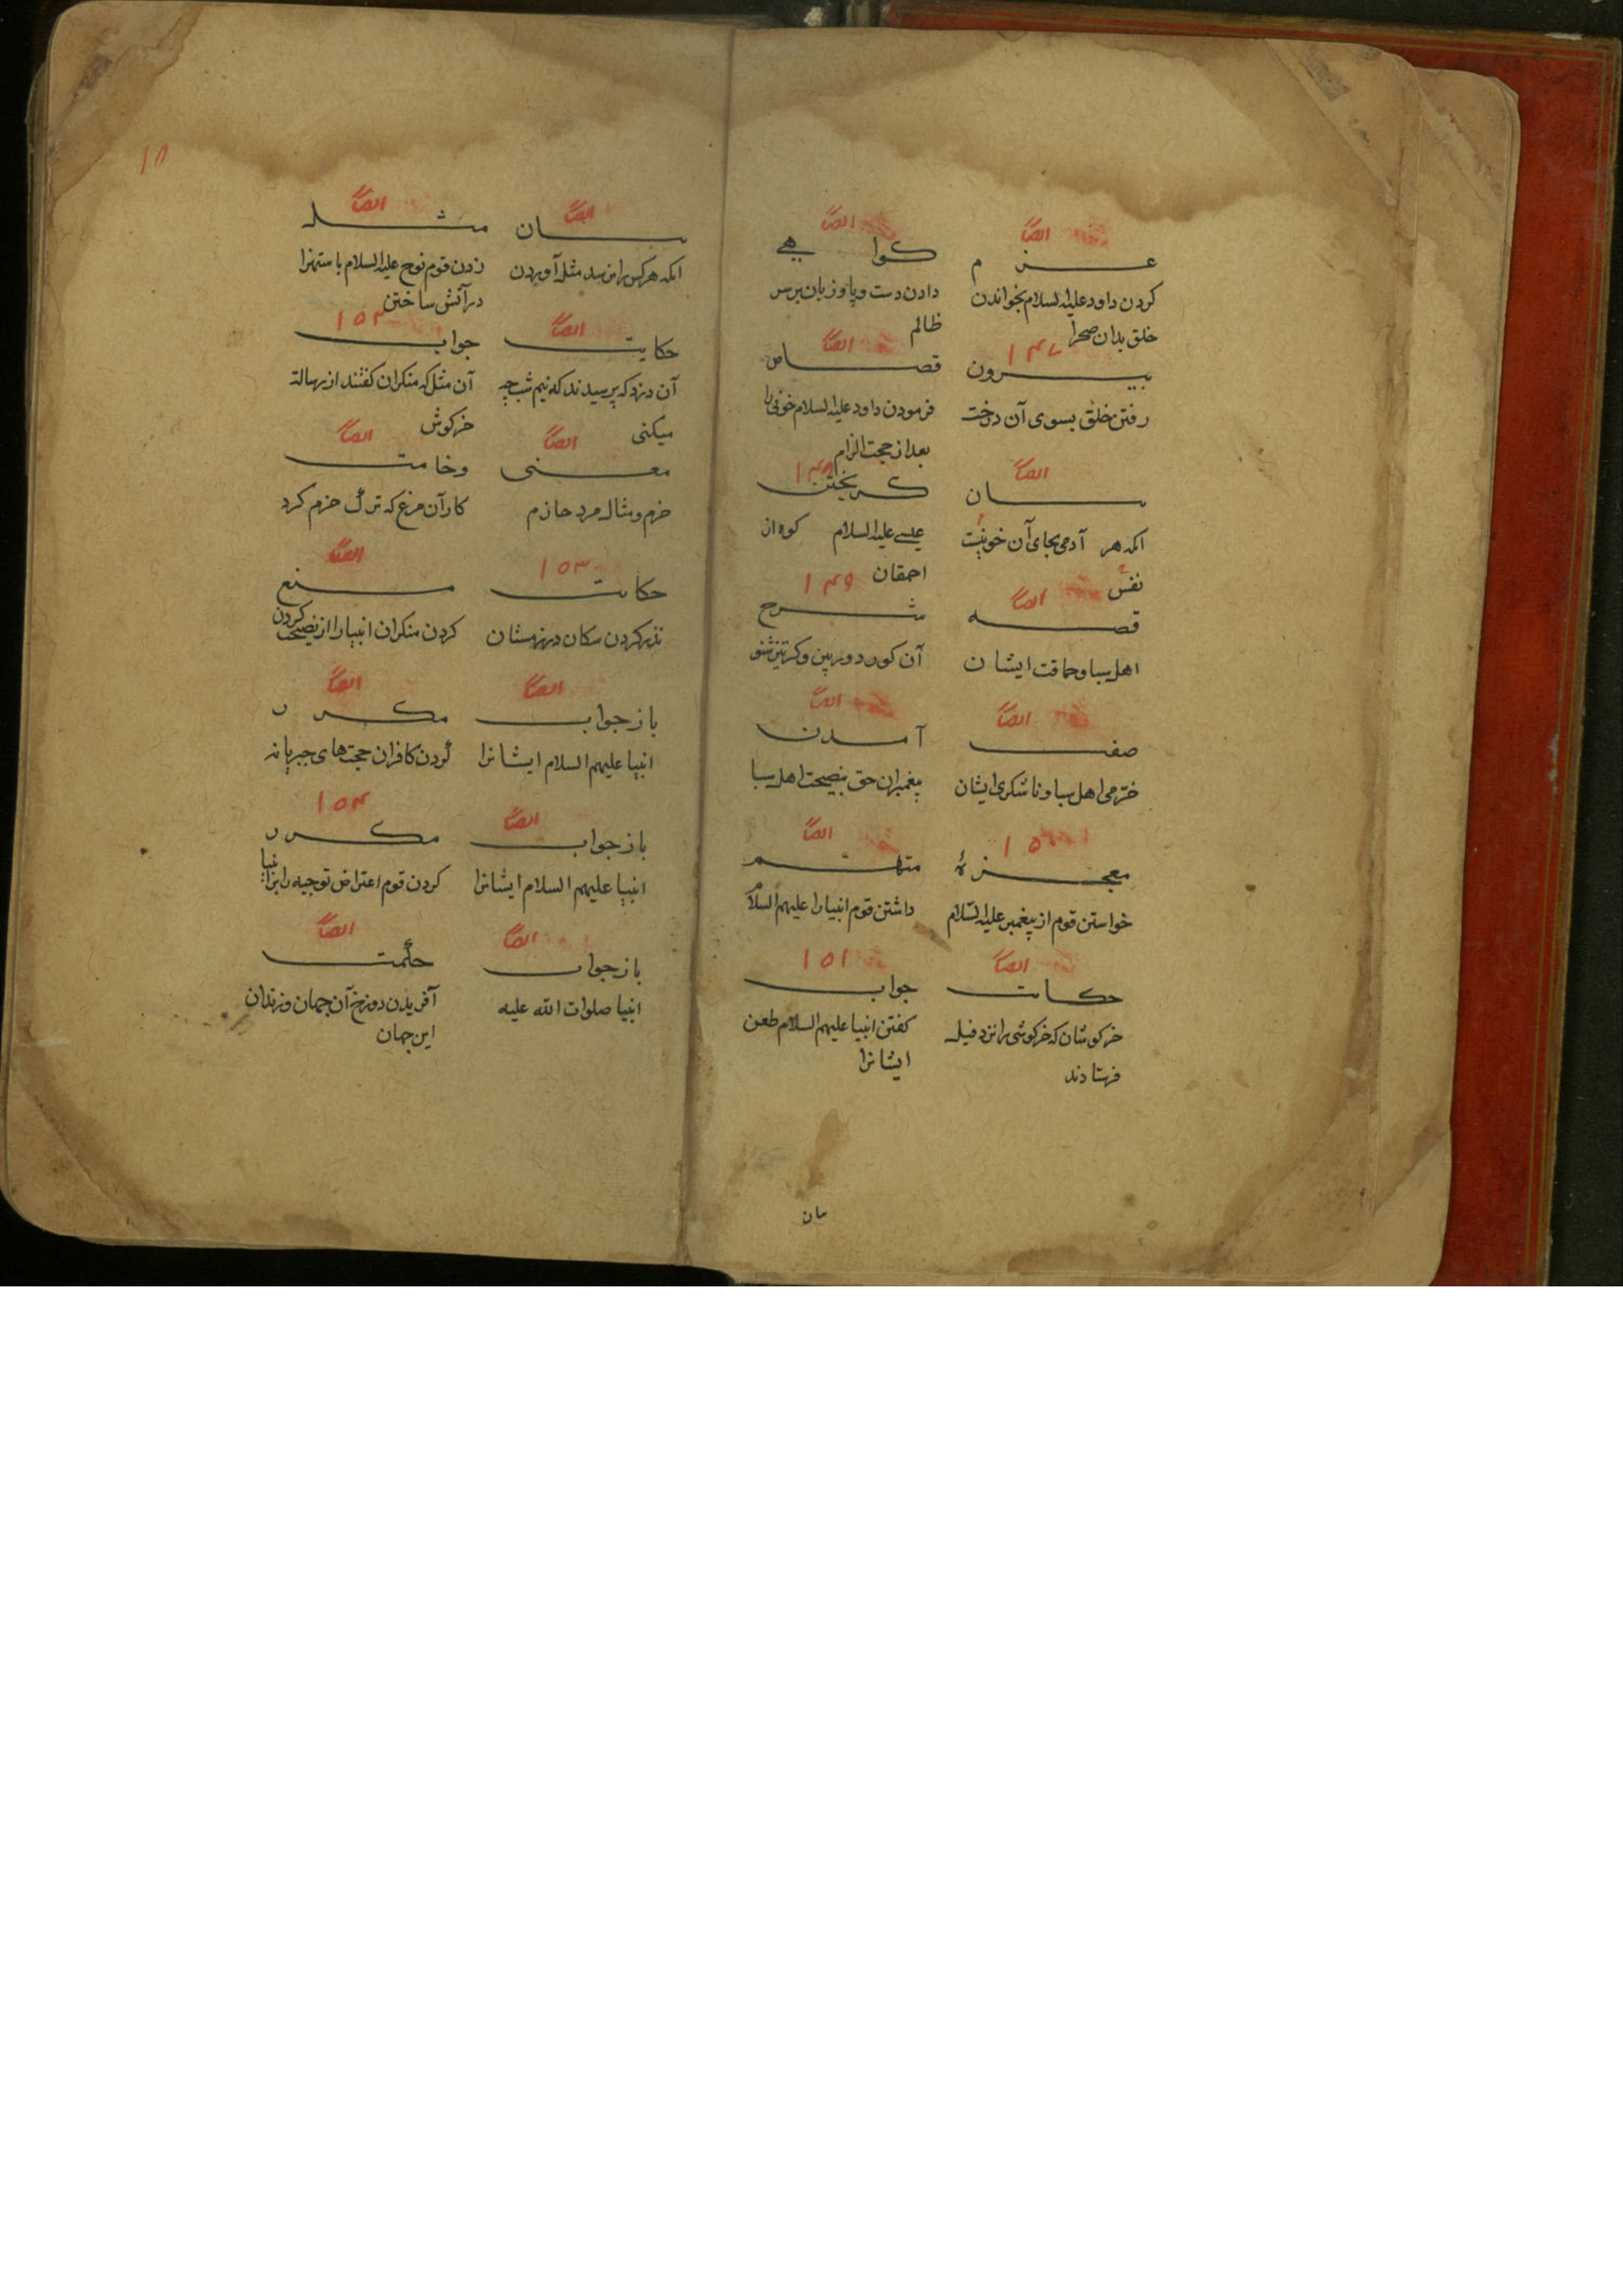 ایضاً
عزم
کردن داود علیه السلام بخواندن
خلق بدان صحرا
ایضاً
کواهی
دادن دست و پا و زبان بر سر
ظالم
۱۴۷
بیرون
رفتن خلق بسوی آن درخت
ایضاً
قصاص
فرمودن داود علیه السلام خونی را
بعد از حجت الزام
ایضاً
سان
انکه هر آدمی بجای آن خونیست
نفس
۱۴۸
کریختن
عیسی علیه السلام کوه از
احمقان
ایضاً
قصه
اهل سبا و حماقت ایشان
۱۴۹
شرح
آن کور دوربین و کر تیزشنو
ایضاً
صفت
خرّمی اهل سبا و ناشکری ایشان
ایضاً
آمدن
پیغمبران حق بنصیحت اهل سبا
۱۵۰
معجزهٔ
خواستن قوم از پیغمبر علیه السّلام
ایضاً
متهم
داشتن قوم انبیا را علیهم السلام
ایضاً
حکات
خرکوشان که خرکوشی را نزد فیل
فرستادند
۱۵۱
جواب
کفتن انبیا علیهم السلام طعن
ایشانرا
مان
۱۸
ایضاً
سان
انکه هر کس را نرسد مثل آوردن
ایضاً
مثل
زدن قوم نوح علیه السلام باستهزا
در آتش ساختن
ایضاً
حکایت
آن دزد که پرسیدند که نیم شب چه
میکنی
۱۵۲
جواب
آن مثل که منکران کفتند از رسالت
خرکوش
ایضاً
معنی
حزم و مثال مرد حازم
ایضاً
وخامت
کار آن مرغ که ترک حزم کرد
۱۵۳
حکات
نذر کردن سکان در زمستان
ایضاً
منع
کردن منکران انبیا را از نصیحت کردن
ایضاً
باز جواب
انبیا علیهم السلام ایشانرا
ایضاً
مکرر
کردن کافران حجت‌های جبریانه
ایضاً
باز جواب
انبیا علیهم السلام ایشانرا
۱۵۴
مکرر
کردن قوم اعتراض توجیه را بر انبیا
ایضاً
باز جواب
انبیا صلوات الله علیه
ایضاً
حکمت
آفریدن دوزخ آن جهان و زندان
این جهان